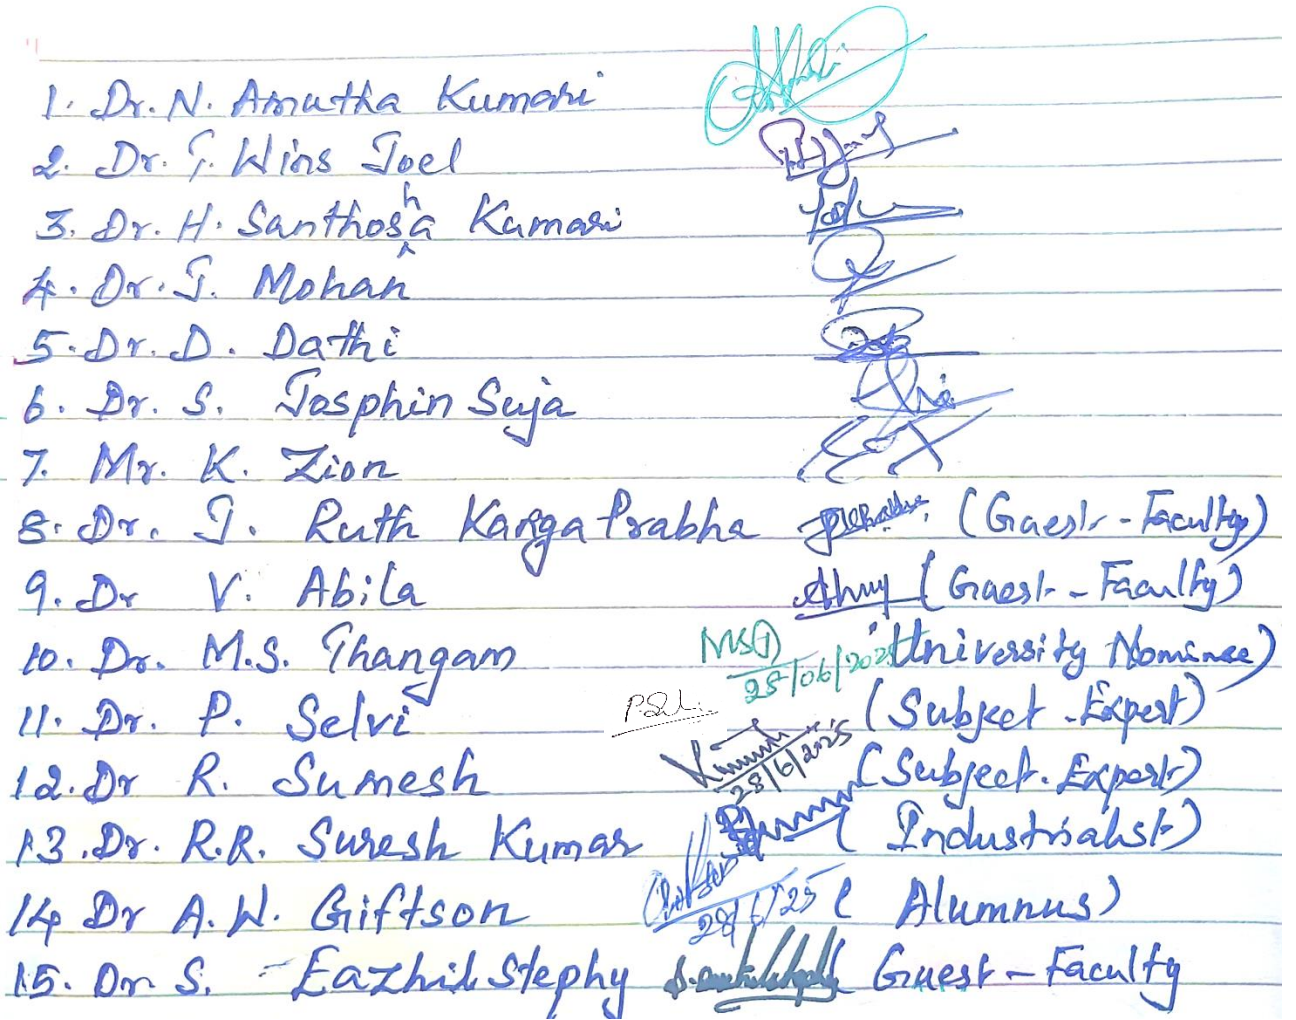 1. Dr. N. Amutha Kumari
2. Dr. T. Wins Joel
3. Dr. H. Santhosha Kumari
4. Dr. J. Mohan
5. Dr. D. Dathi
6. Dr. S. Josphin Suja
7. Mr. K. Zion
8. Dr. J. Ruth Kanga Prabha (Guest - Faculty)
9. Dr V. Abila (Guest - Faculty)
10. Dr. M.S. Thangam MST 28/06/2025 (University Nominee)
11. Dr. P. Selvi (Subject - Expert)
12. Dr R. Sumesh 28/6/2025 (Subject. Expert)
13. Dr. R.R. Suresh Kumar (Industrialist)
14 Dr A.W. Giftson 28/6/25 (Alumnus)
15. Dr. S. Eazhil Stephy Guest - Faculty